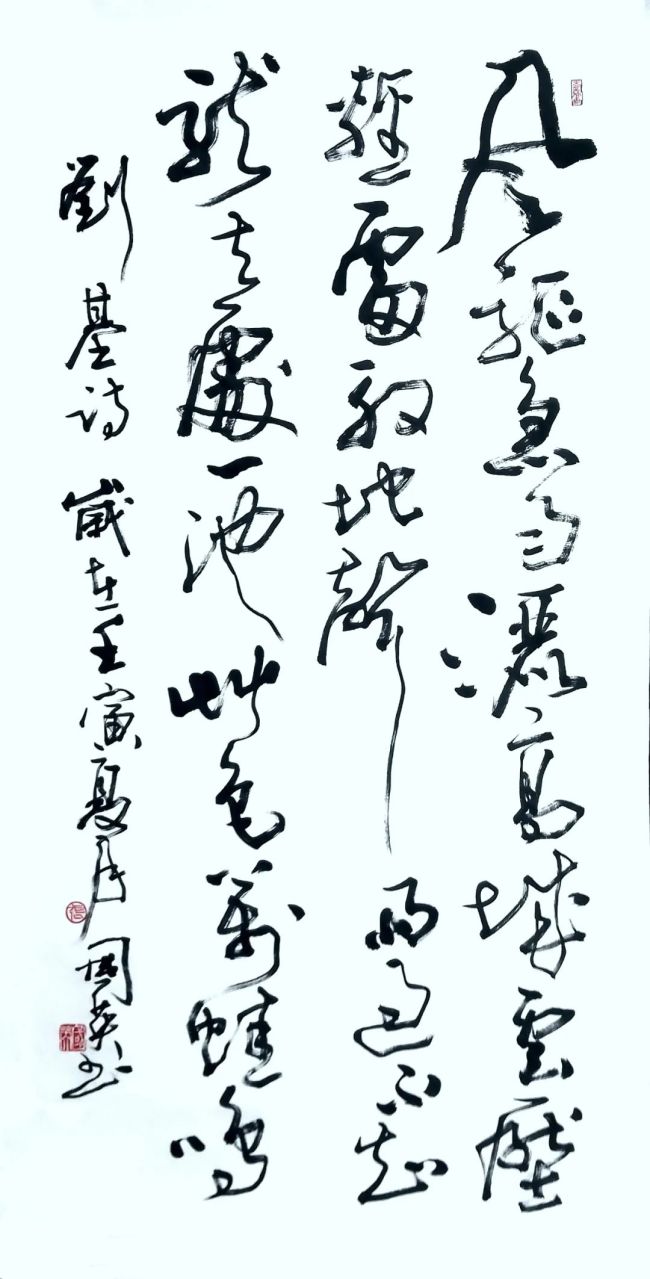 風驅急雨灑高城雲壓
輕雷殷地聲雨過不知
龍去處一池艸色萬蛙鳴
劉基詩 歲在壬寅夏月 國英书